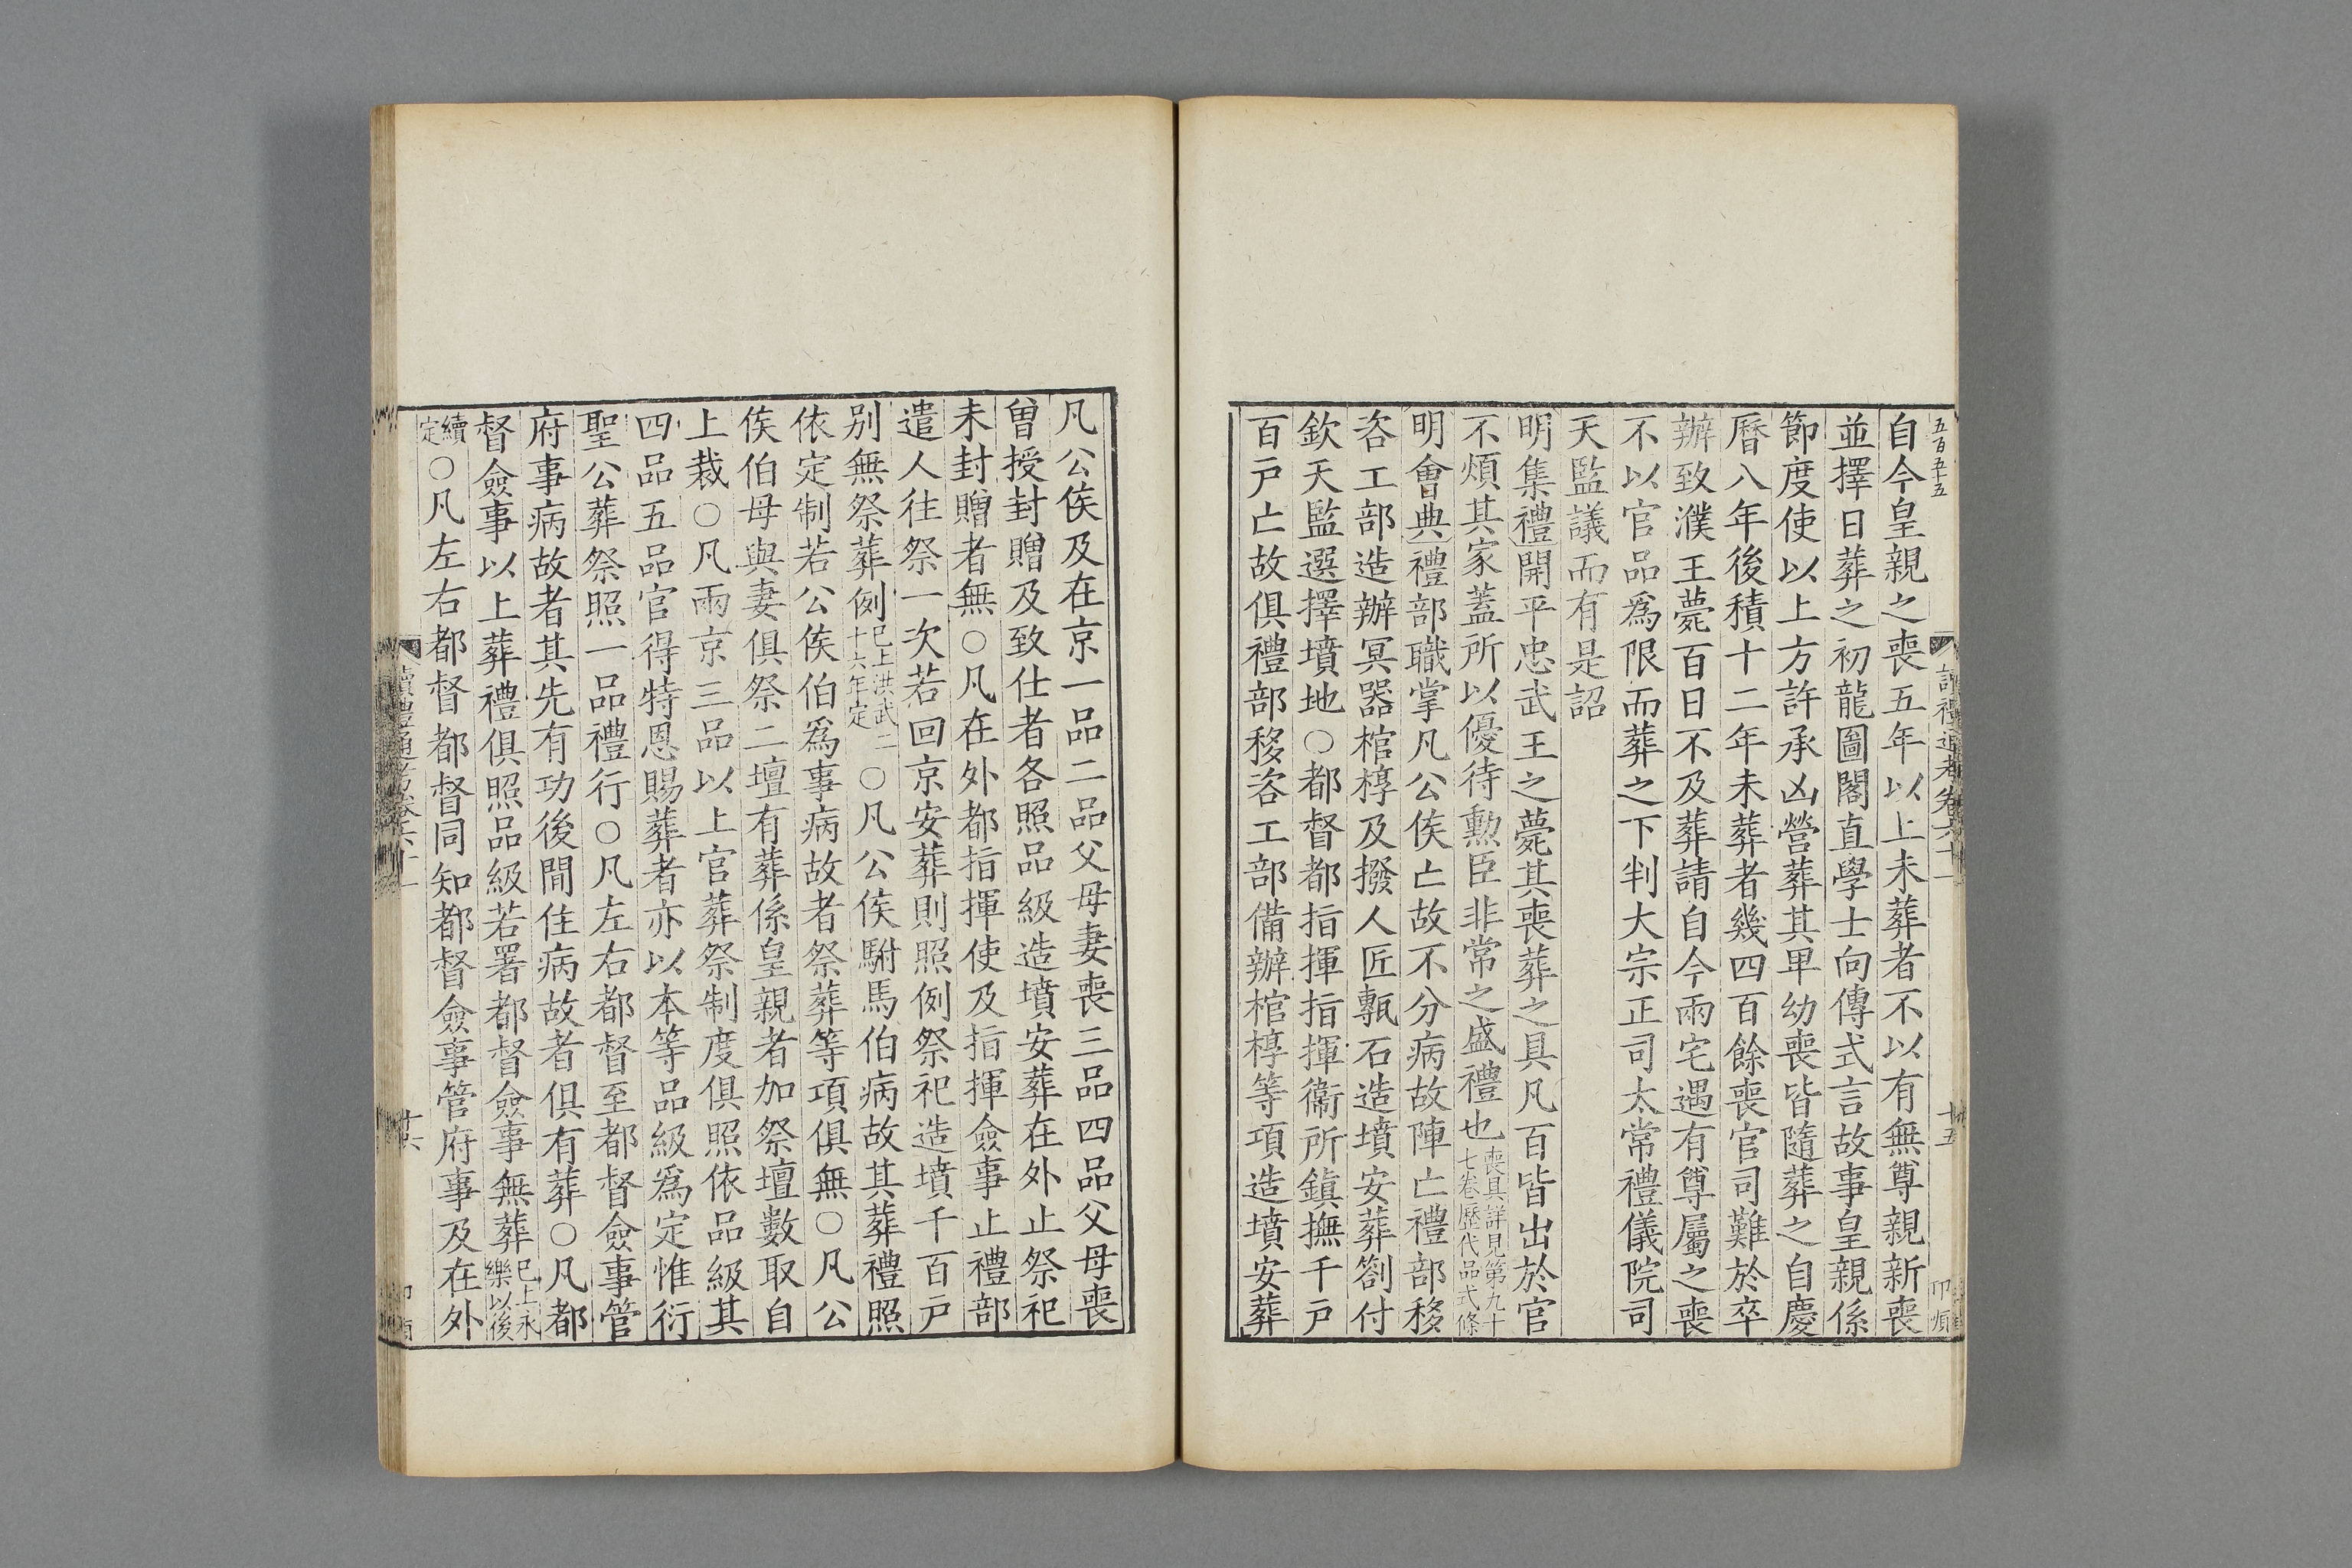 五百五十五
讀禮通考卷六十一
十五
自今皇親之喪五年以上未葬者不以有無尊親新喪
並擇日葬之初龍圖閣直學士向傳式言故事皇親係
節度使以上方許承凶營葬其𤰞幼喪皆隨葬之自慶
曆八年後積十二年未葬者幾四百餘喪官司難於卒
辦致濮王薨百日不及葬請自今兩宅遇有尊屬之喪
不以官品爲限而葬之下判大宗正司太常禮儀院司
天監議而有是詔
明集禮開平忠武王之薨其喪葬之具凡百皆出於官
不煩其家蓋所以優待勲臣非常之盛禮也喪具詳見第九十七卷歷代品式條
明會典禮部職掌凡公侯亡故不分病故陣亡禮部移
咨工部造辦冥器棺槨及撥人匠甎石造墳安葬劄付
欽天監選擇墳地○都督都指揮指揮衞所鎮撫千戸
百戸亡故俱禮部移咨工部備辦棺槨等項造墳安葬
凡公侯及在京一品二品父母妻喪三品四品父母喪
曾授封贈及致仕者各照品級造墳安葬在外止祭祀
未封贈者無○凡在外都指揮使及指揮僉事止禮部
遣人往祭一次若回京安葬則照例祭祀造墳千百戸
別無祭葬例已上洪武二十六年定○凡公侯駙馬伯病故其葬禮照
依定制若公侯伯爲事病故者祭葬等項俱無○凡公
侯伯母與妻俱祭二壇有葬係皇親者加祭壇數取自
上裁○凡兩京三品以上官葬祭制度俱照依品級其
四品五品官得特恩賜葬者亦以本等品級爲定惟衍
聖公葬祭照一品禮行○凡左右都督至都督僉事管
府事病故者其先有功後閒住病故者俱有葬○凡都
督僉事以上葬禮俱照品級若署都督僉事無葬已上永樂以後
續定○凡左右都督都督同知都督僉事管府事及在外
讀禮通考卷六十一
十六